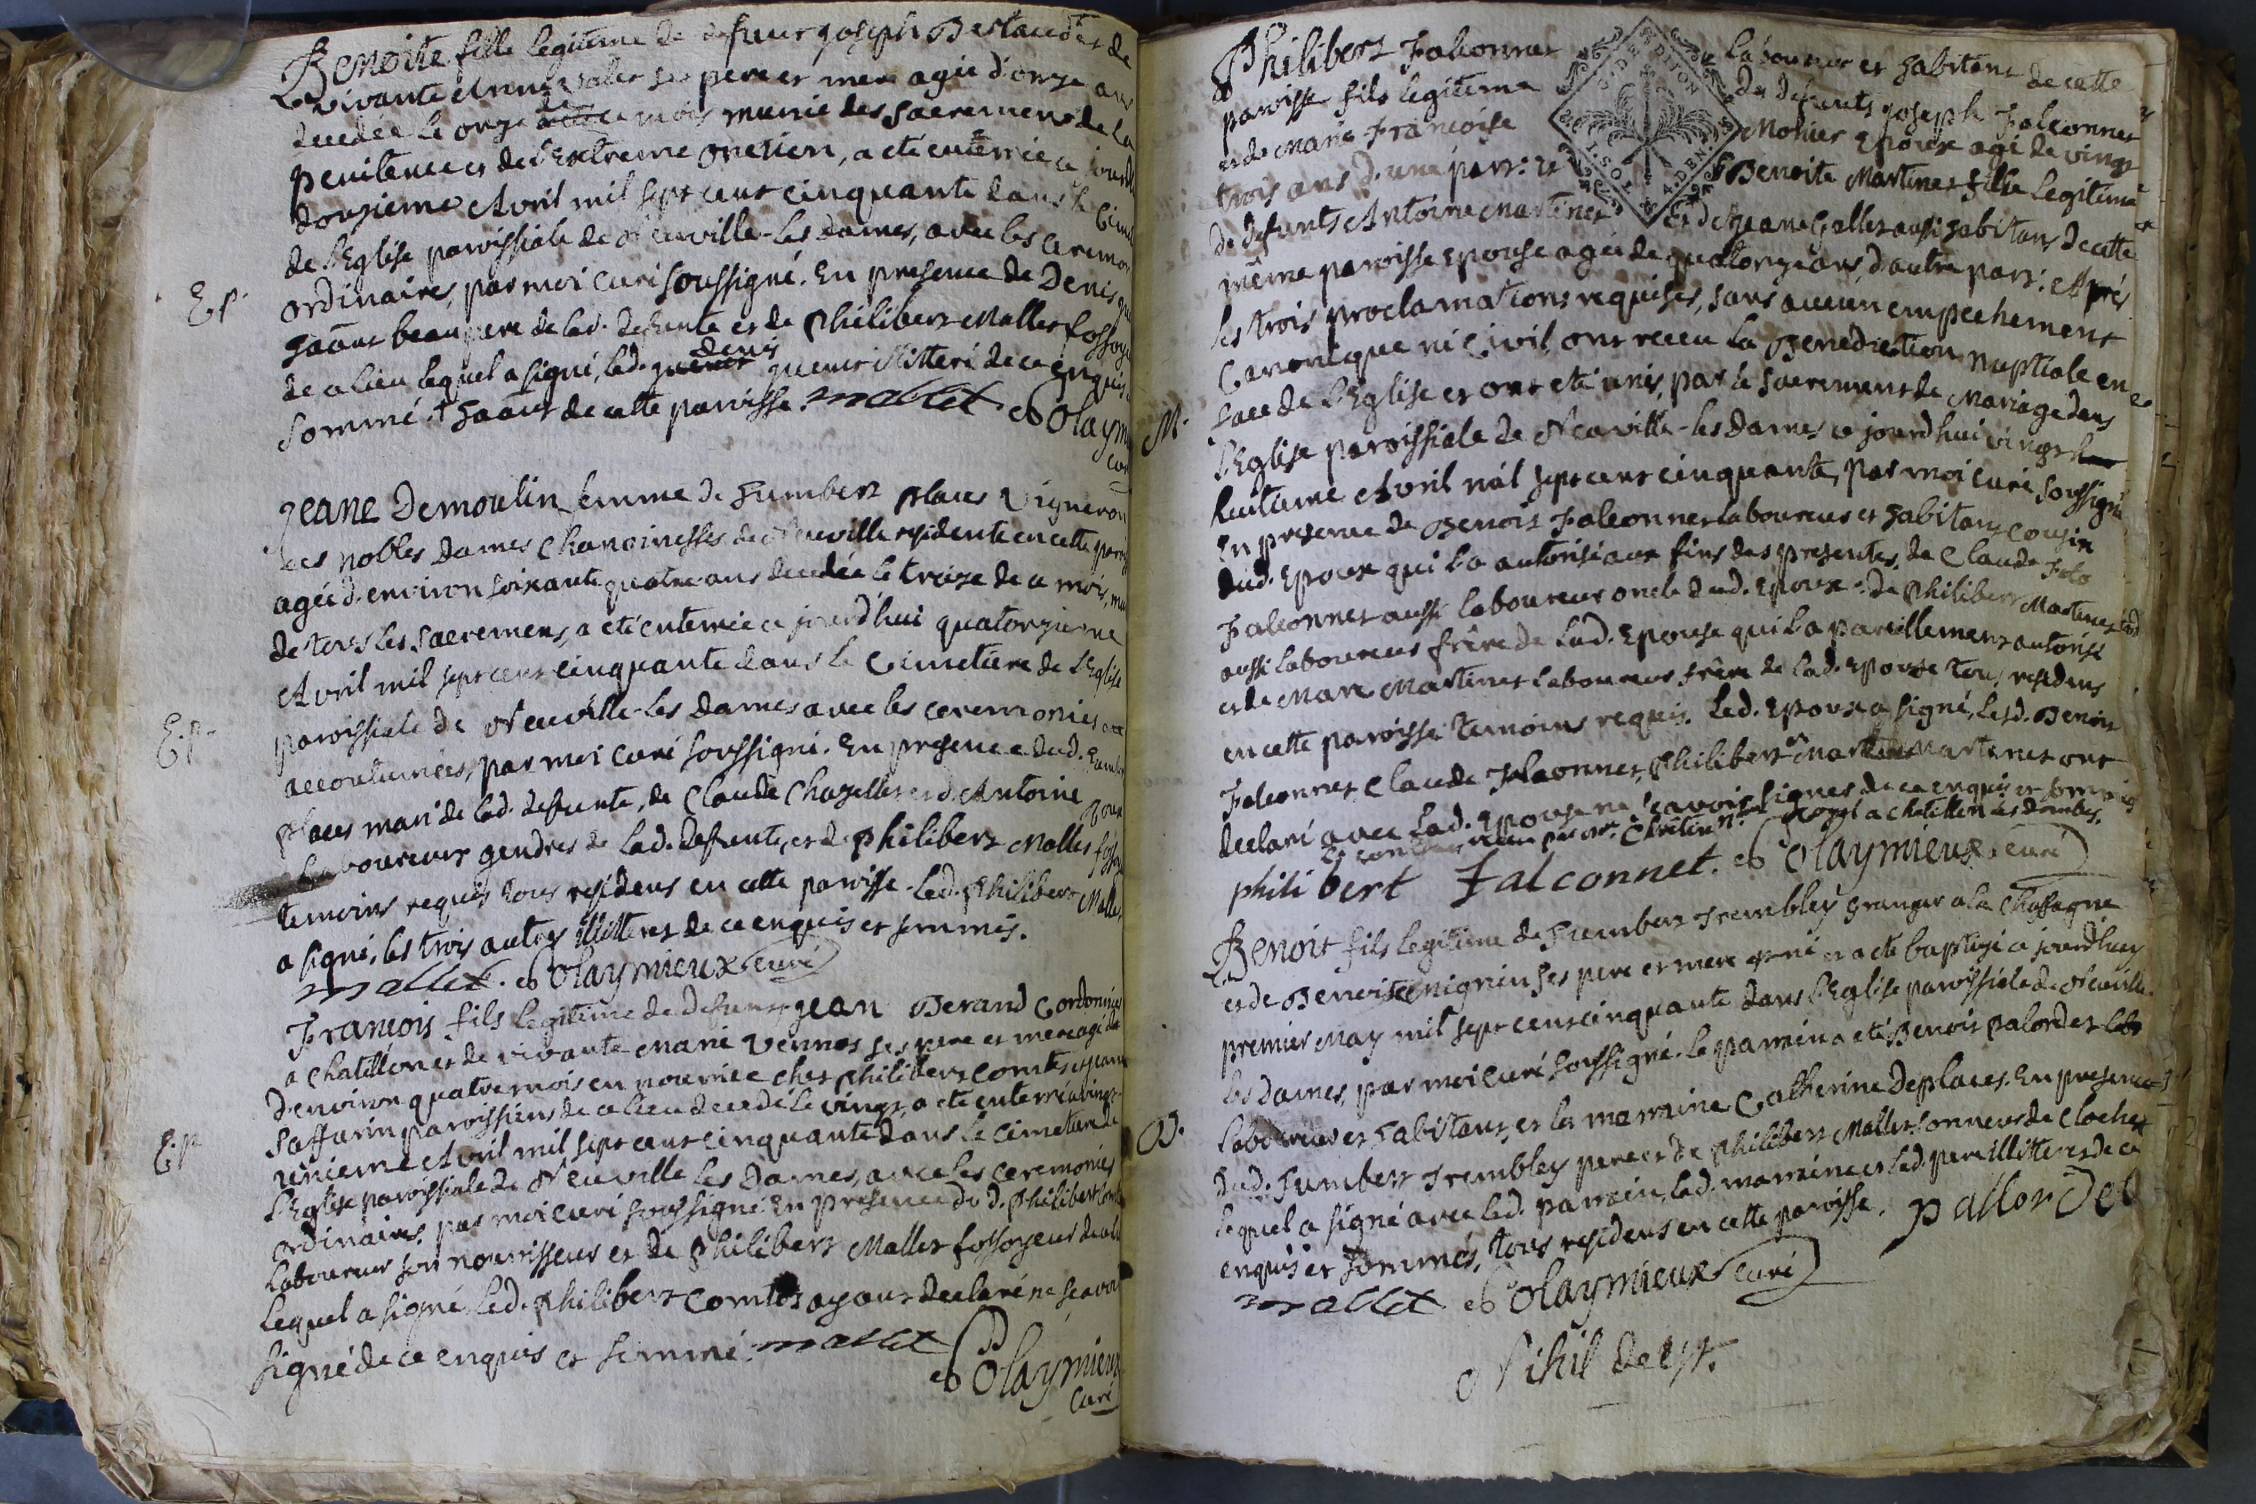 Benoite fille legitime de defunt joseph Bestaud et de
vivante Anne ses pere et mere agée d'onze ans
decedée le onze de ce mois munie des sacremens de la
penitence et de l'extreme onction, a été enterrée ce jourd
douzieme Avril mil sept cent cinquante dans le Cime
de l'Eglise paroissiale de Neuville-les dames, avec les ceremon
ordinaires, par moi curé soussigné. En presence de Denis
beau pere de lad. defunte et de Philibert Mallet fossoye
de ce lieu lequel a signé, led. denis illiteré de ce enquis
sommé. de cette paroisse. mallet Olaym
E.p.
Jeane Demoulin femme de humbert places Vigneron
des nobles Dames Chanoinesses de Neuville residente en cette paroi
agée d'environ soixante quatre ans decedée le treize de ce mois, mu
de tous les sacremens, a été enterrée ce jourd'hui quatorzieme
Avril mil sept cent cinquante dans le Cimetiere de l'Eglise
paroissiale de Neuville-les Dames avec les ceremonies
accoutumées, par moi curé soussigné. En presence dud. humber
places mari de lad. defunte, de Claude Chazelles et d'Antoine
laboureurs gendres de lad. defunte, et de Philibert Mallet fossoy
temoins requis tous residens en cette paroisse. led. Philibert Mallet
a signé, les trois autres illitteres de ce enquis et sommés.
mallet. Olaymieux curé
E.p.
Francois fils legitime de defunt jean Berand Cordonnier
a Chatillon et de vivante Marie Vennos ses pere et mere agé
d'environ quatre mois en nourrice chez philibert Comtes et jeane
Saffarin paroissiens de ce lieu decedé le vingt, a été enterré
unieme Avril mil sept cent cinquante dans le cimetiere de
l'Eglise paroissiale de Neuville les Dames, avec les ceremonies
ordinaires, par moi curé soussigné. En presence dud. Philibert Comte
laboureur son nourrisseur et de Philibert Mallet fossoyeur de ce
lequel a signé led. philibert Comtes ayant declaré ne scavoir
signé de ce enquis et sommé. mallet
Olaymieux
Curé
E.p.
Philibert Falconnet laboureur et habitant de cette
paroisse fils legitime de defunts joseph Falconnet
et de Marie Francoise Monier Epoux agé de vingt
trois ans d'une part: et Benoite Martinet fille legitime
de defunts Antoine Martinet et de jeane Gallet aussi habitans de cette
G.D'ESDITON
I.SOL 4.DEN.
même paroisse Epouse agée de quatorze ans d'autre part: Aprés
les trois proclamations requises, sans aucun empechement
Canonique ni Civil ont receu la Benediction nuptiale en
face de l'Eglise et ont eté unis, par le sacrement de Mariage dans
l'Eglise paroissiale de Neuville-les Dames ce jourd'hui vingt
huitieme Avril mil sept cent cinquante, par moi curé soussigné
M.
En presence de Benoit Falconnet laboureur et habitant Cousin
dud. Epoux qui l'a autorisé aux fins des presentes, de Claude
Falconnet aussi laboureur oncle dud. Epoux, de Philibert Martinet
aussi laboureur frère de lad. Epouse qui l'a pareillement autorisé
et de Marc Martinet laboureur frère de lad. epouse tous residens
en cette paroisse temoins requis. Led. Epoux a signé, lesd. Benoit
Falconnet Claude Falconnet, Philibert et Marc Martinet ont
declaré avec lad. Epouse ne scavoir signer de ce enquis et sommés
par me. Chrétin royal a chatillon les dombes.
philibert Falconnet. Olaymieux curé
Benoit fils legitime de humbert Trembley granger a la Chassagne
et de Benoite Mignin ses pere et mere est né et a eté baptisé ce jourd'huy
premier May mil sept cent cinquante dans l'Eglise paroissiale de Neuville
les dames, par moi curé soussigné. le parrain a eté Benoit palordet
laboureur et habitant, et la marraine Catherine Deplaces. En presence
B.
dud. humbert Trembley pere et de Philibert Mallet sonneur de cloches
lequel a signé avec led. parrain, lad. marraine et led. pere illitteres de ce
enquis et sommés, tous residens en cette paroisse. pallordet
mallet Olaymieux curé
Nihil deest.